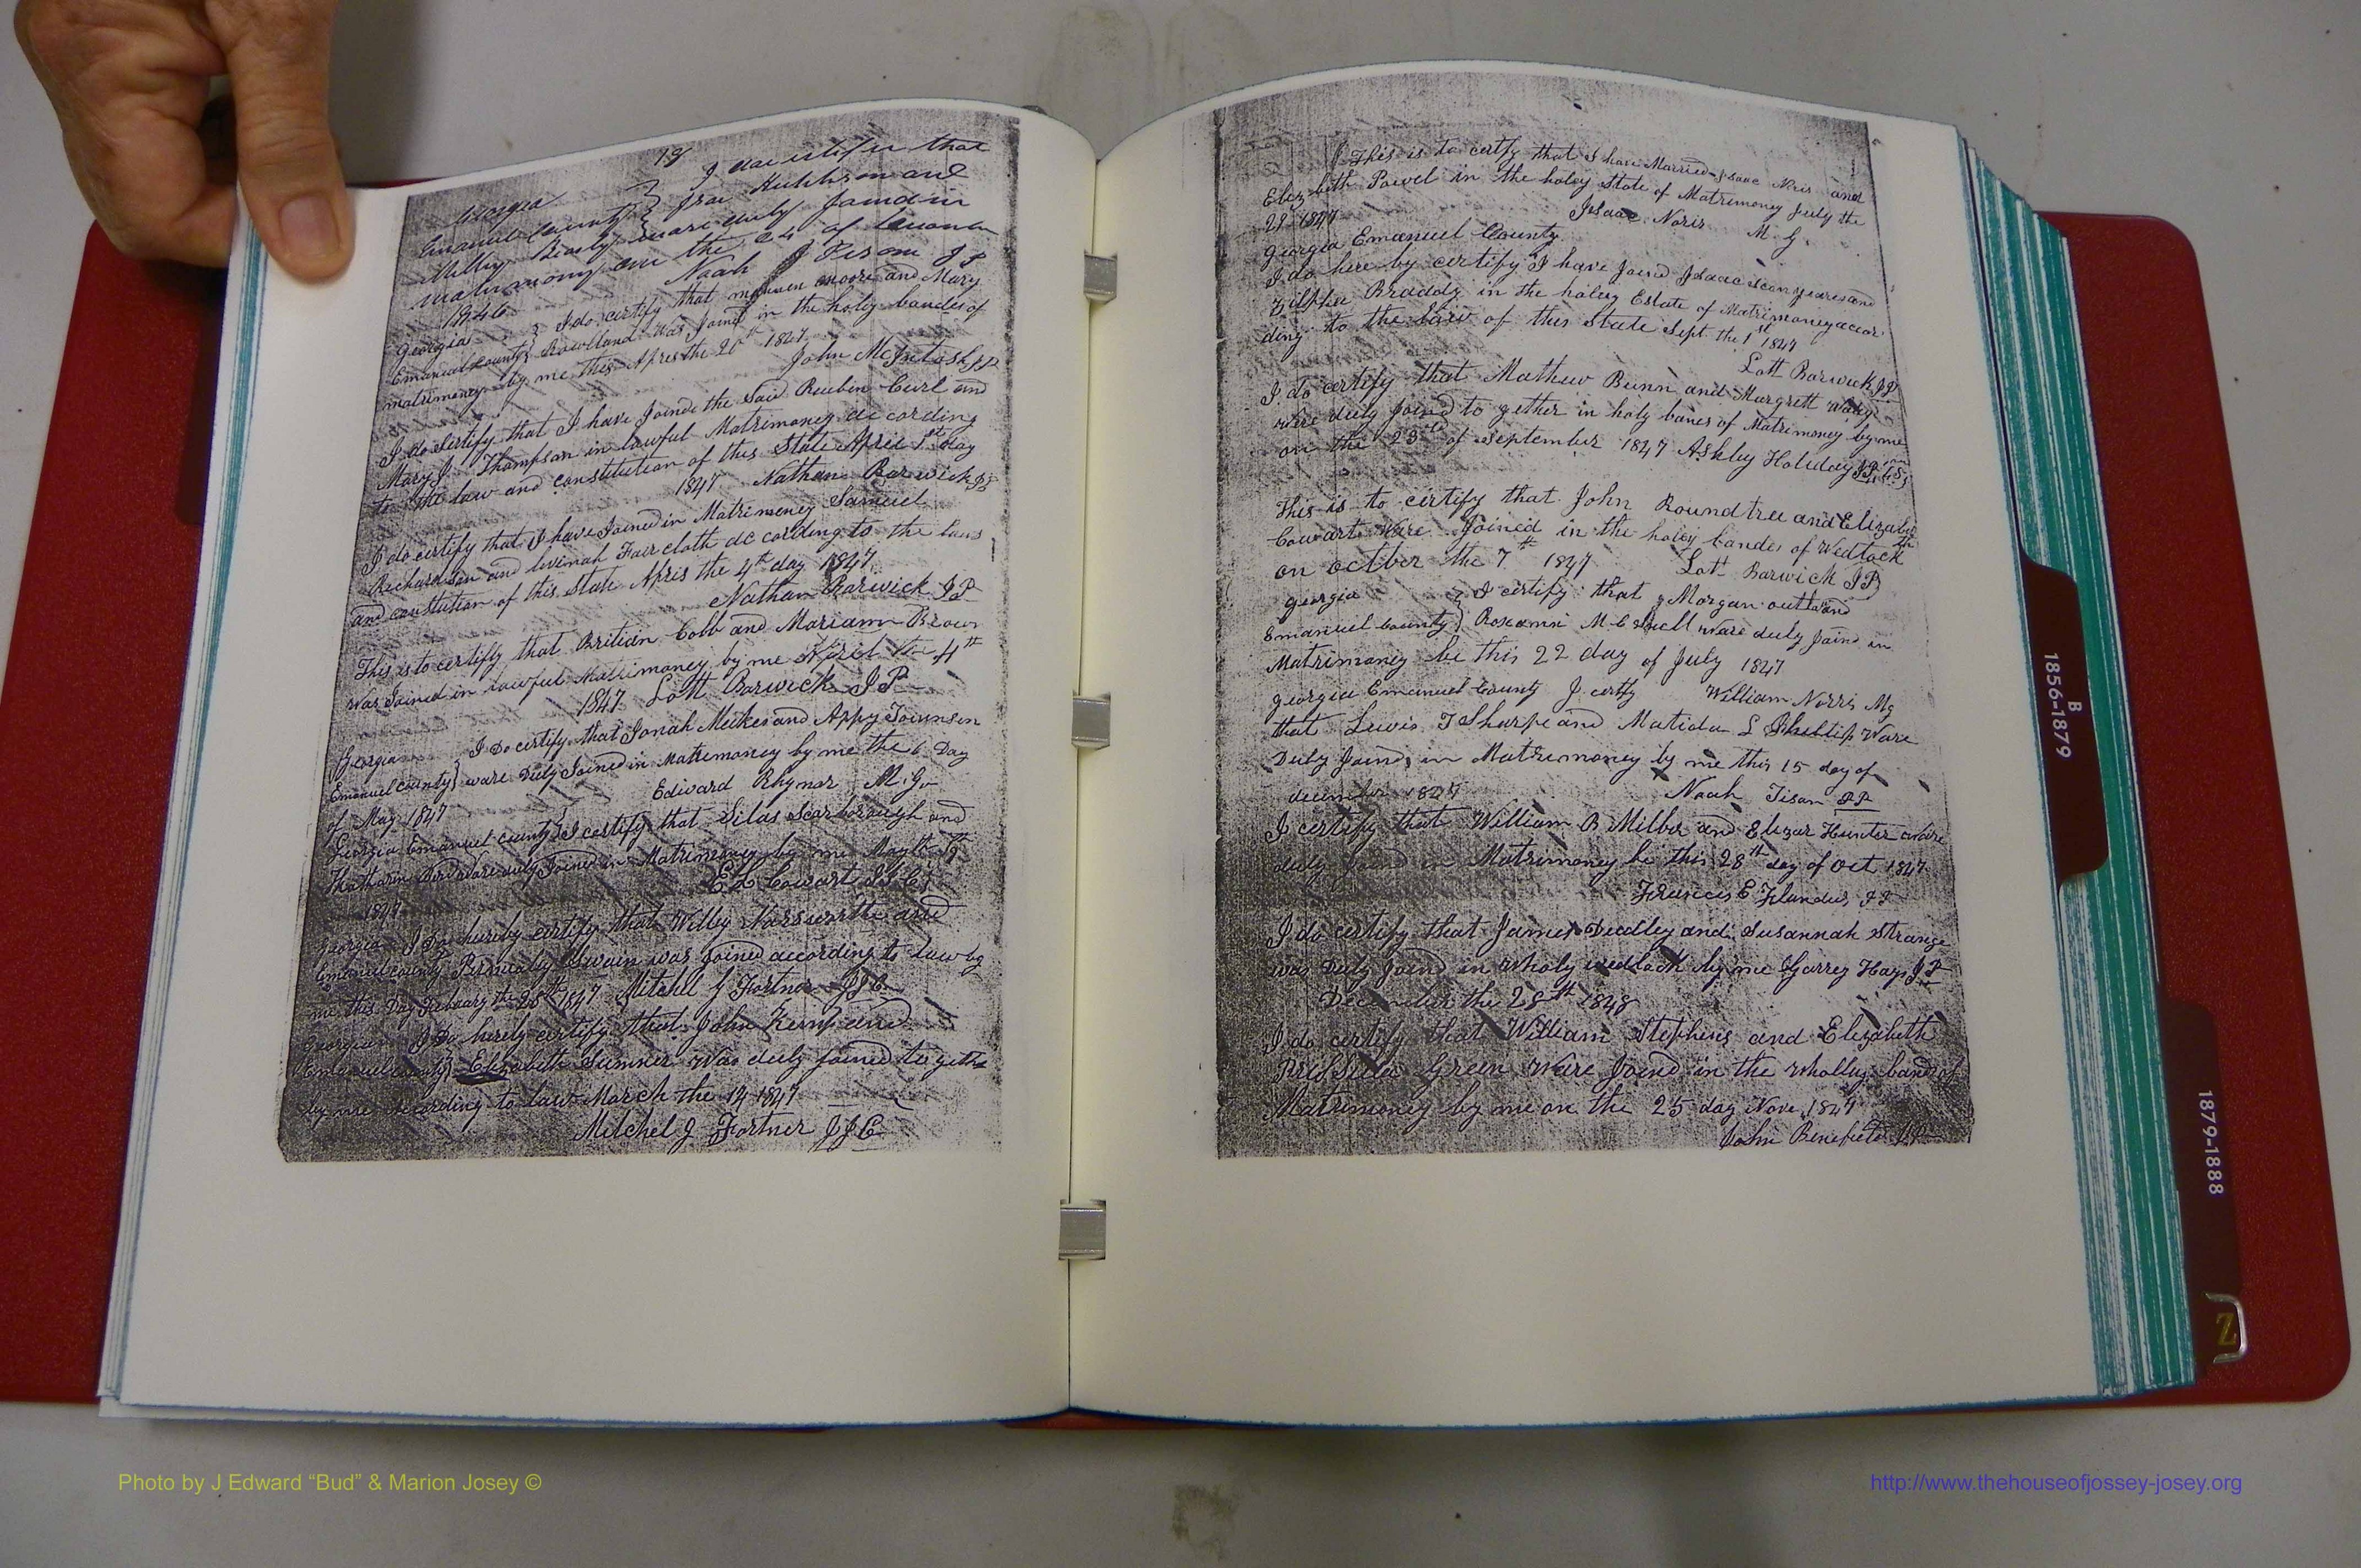 19
Georgia } I doe certify that
Emanuel County } Hutchson and
Milley were duly Joind in
matrimony on the 24 of
1846 Noah J Tison JP
Georgia } I do certify that moore and Mary
Emanuel County } Rowland Was Joind in the holy bandes of
matrimony by me this Aprel the 20th 1847
John McIntosh JP
I do certify that I have Joinde the Said Reuben Curl and
Mary J Thompson in lawful Matrimoney ac cording
to the law and constitution of this State April 1st day
1847 Nathan Barwick JP
I do certify that I have Joined in Matrimoney Samuel
Richardson and Faircloth ac cording to the laws
and constution of this State Apris the 4th day 1847
Nathan Barwick JP
This is to certifly that Britian Cobb and Mariann Brown
was Joined in lawful Matrimoney by me April the 4th
1847 Lott Barwick JP
Georgia } I Do certify that Jonah Meekes and Appy Jounson
Emanuel County } ware Duly Joined in Matremoney by me the 6 Day
of May 1847 Edward Rhyner M.G.
Georgia Emanuel County } I certify that Silas Scarborough and
ware duly Joined in Matrimoney by me May the
1847 Cowart
Georgia I Do hereby certify that Willy and
Emanuel County Swain was joined according to law by
me this Day Febuary the 28th 1847 Mitchel J Fortner JJC
Georgia I Do herely certify that John Kemp and
Emanuel County } Elizabeth Sumner was duly joined to gether
by me according to law March the 14 1847
Mitchel J Fortner JJC
This is to certfy that I have Married Isaac Noris and
Elezebeth Powel in the holey State of Matrimoney July the
29 1847 Isaac Noris M.G.
Georgia Emanuel County
I do here by certify I have joind Isaac and
Zilpha Braddy in the holey Estate of Matrimoney accor
ding to the law of this State Sept the 1st 1847
Lott Barwick JP
I do certify that Mathew Bunn and Margrett
were duly joind to gether in holy banes of Matrimoney by me
on the 23d of September 1847 Ashley Holiday
This is to certify that John Roundtree and Elizabeth
Cowart Ware Joined in the holey bandes of Wedlock
on octber the 7th 1847 Lott Barwick JP
Georgia } I certify that Morgan and
Emanuel County } Roxann ware duly Joind in
Matrimoney be this 22 day of July 1847
Georgia Emanuel County I certfy William Norris Mg
that Lewis T Sharpe and Matilda L Phillips Ware
Duly Joind in Matremoney by me this 15 day of
december 1847 Noah Tison JP
I certify that William B Milber and Elizar Hunter ware
duly joind in Matrimoney be this 28th day of Oct 1847
Francces E Flanders JP
I do certify that James Deadley and Susannah Strange
was Duly Joind in wholy wedlock by me Hays JP
December the 28th 1848
I do certify that William Stephins and Elizabeth
Green Ware Joind in the wholley band of
Matrimoney by me on the 25 day Nove 1847
John Benefield JP
B
1856-1879
1879-1888
Z
Photo by J Edward “Bud” & Marion Josey ©
http://www.thehouseofjossey-josey.org